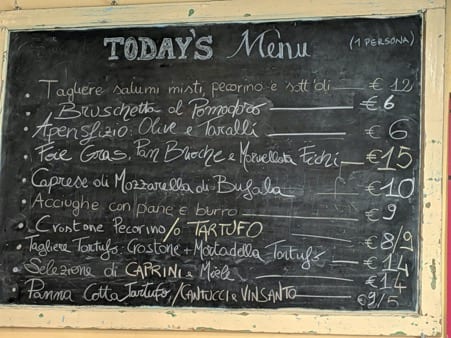 TODAY'S Menù (1 PERSONA)
Tagliere salumi misti, pecorino e sott'oli € 12
Bruschetta al Pomodoro € 6
Aperisfizio: Olive e Taralli € 6
Foie Gras, Pan Brioche e Marmellata Fichi €15
Caprese di Mozzarella di Bufala €10
Acciughe con pane e burro € 9
Crostone Pecorino/o TARTUFO € 8/9
Tagliere Tartufo: Crostone + Mortadella Tartufo € 14
Selezione di CAPRINI e Miele € 14
Panna Cotta Tartufo,/CANTUCCI e VINSANTO €9/5